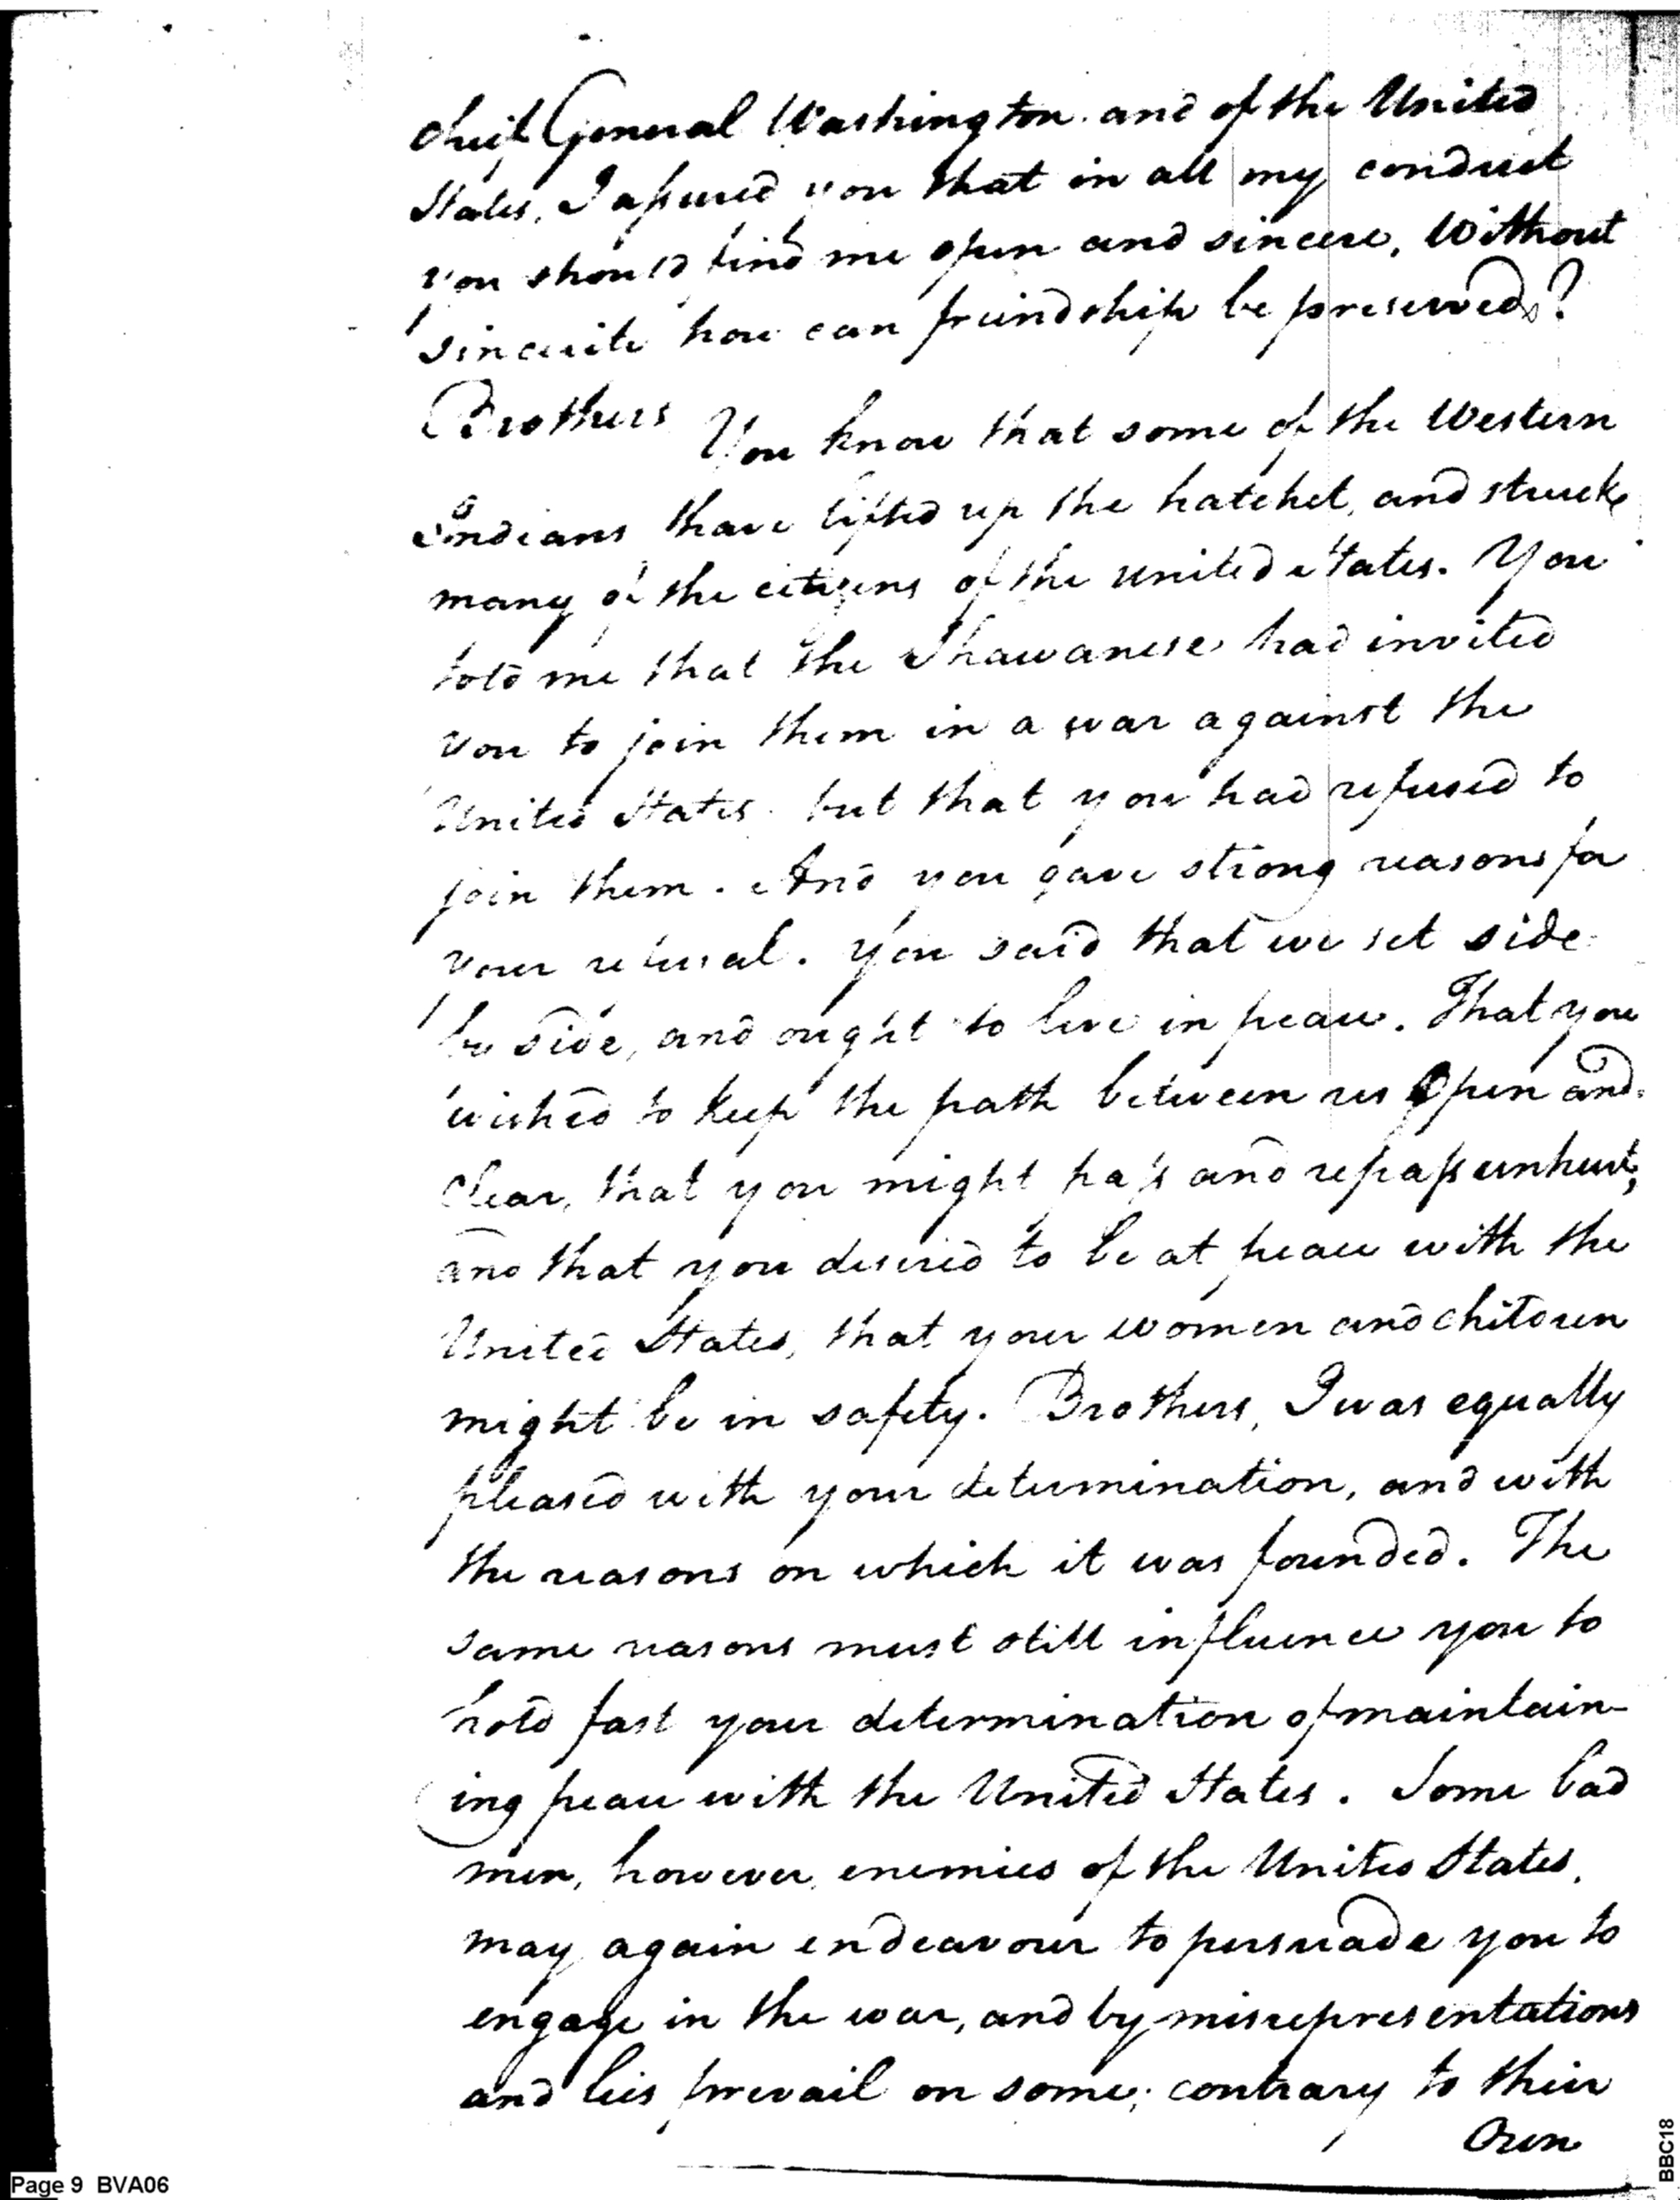 chief General Washington and of the United
States, I assured you that in all my conduct
you should find me open and sincere, Without
sincerity how can friendship be preserved?
Brothers You know that some of the Western
Indians have lifted up the hatchet, and struck
many of the citizens of the united States. You
told me that the Shawanese had invited
you to join them in a war against the
United States but that you had refused to
join them. And you gave strong reasons for
your refusal. You said that we set side
by side, and ought to live in peace. That you
wished to keep the path between us Open and
clear, that you might pass and repass unhurt;
and that you desired to be at peace with the
United States, that your women and children
might be in safety. Brothers, I was equally
pleased with your determination, and with
the reasons on which it was founded. The
same reasons must still influence you to
hold fast your determination of maintain-
ing peace with the United States. Some bad
men, however, enemies of the United States,
may again endeavour to persuade you to
engage in the war, and by misrepresentations
and lies prevail on some; contrary to their
Own
Page 9 BVA06
BBC18